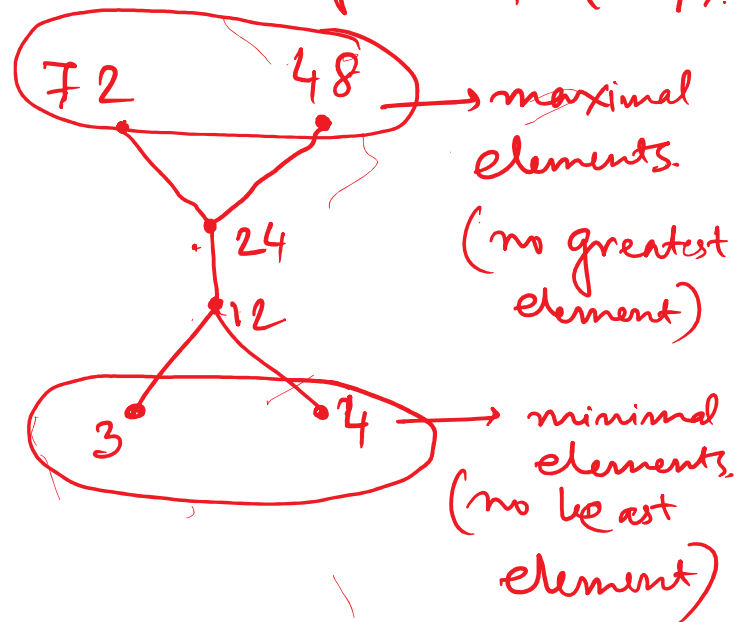 72 48
maximal
elements.
(no greatest
element)
24
12
3 4
minimal
elements.
(no least
element)